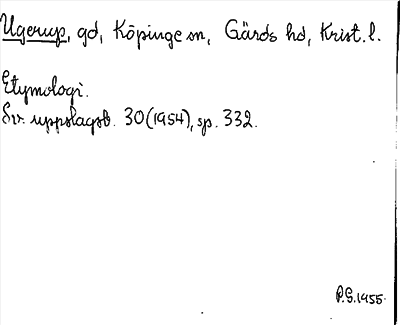 Ugerup, gd, Köpinge sn, Gärds hd, Krist. l.
Etymologi.
Sv. uppslagsb. 30(1954), sp. 332.
P.G.1955.